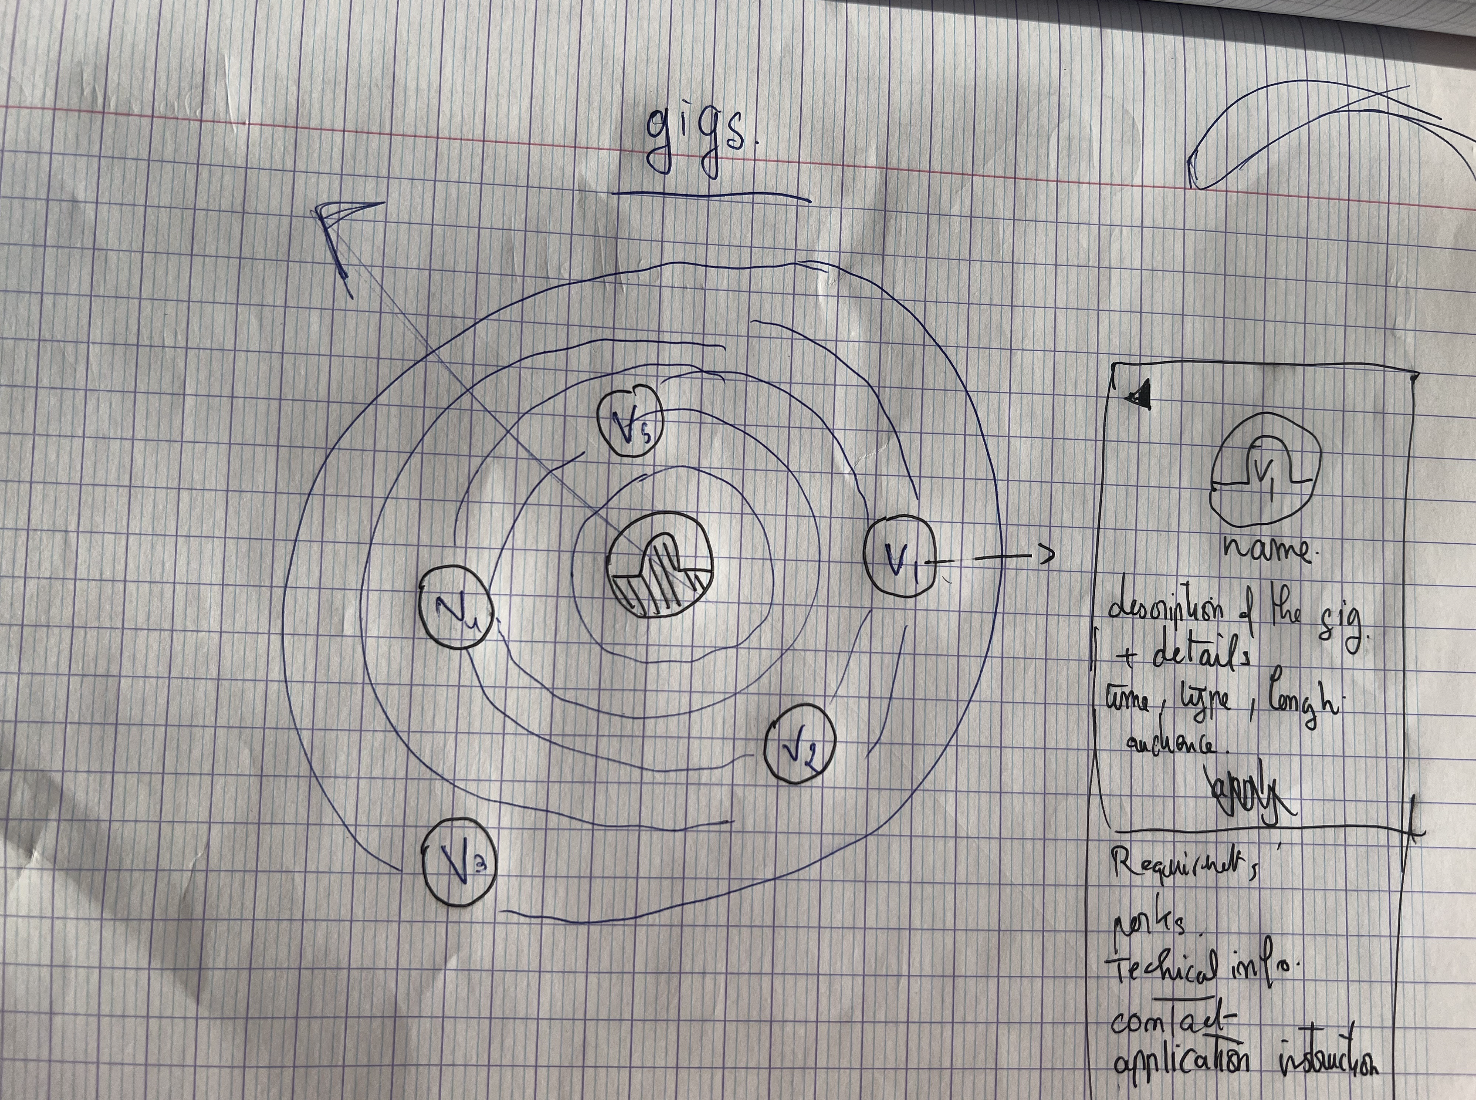 gigs.
V5
V1
V4
V2
V3
V1
name.
description of the gig.
+ details
time, type, lengh
audience.
apply
Requirmets
perks.
Techical info.
contact
application instruction